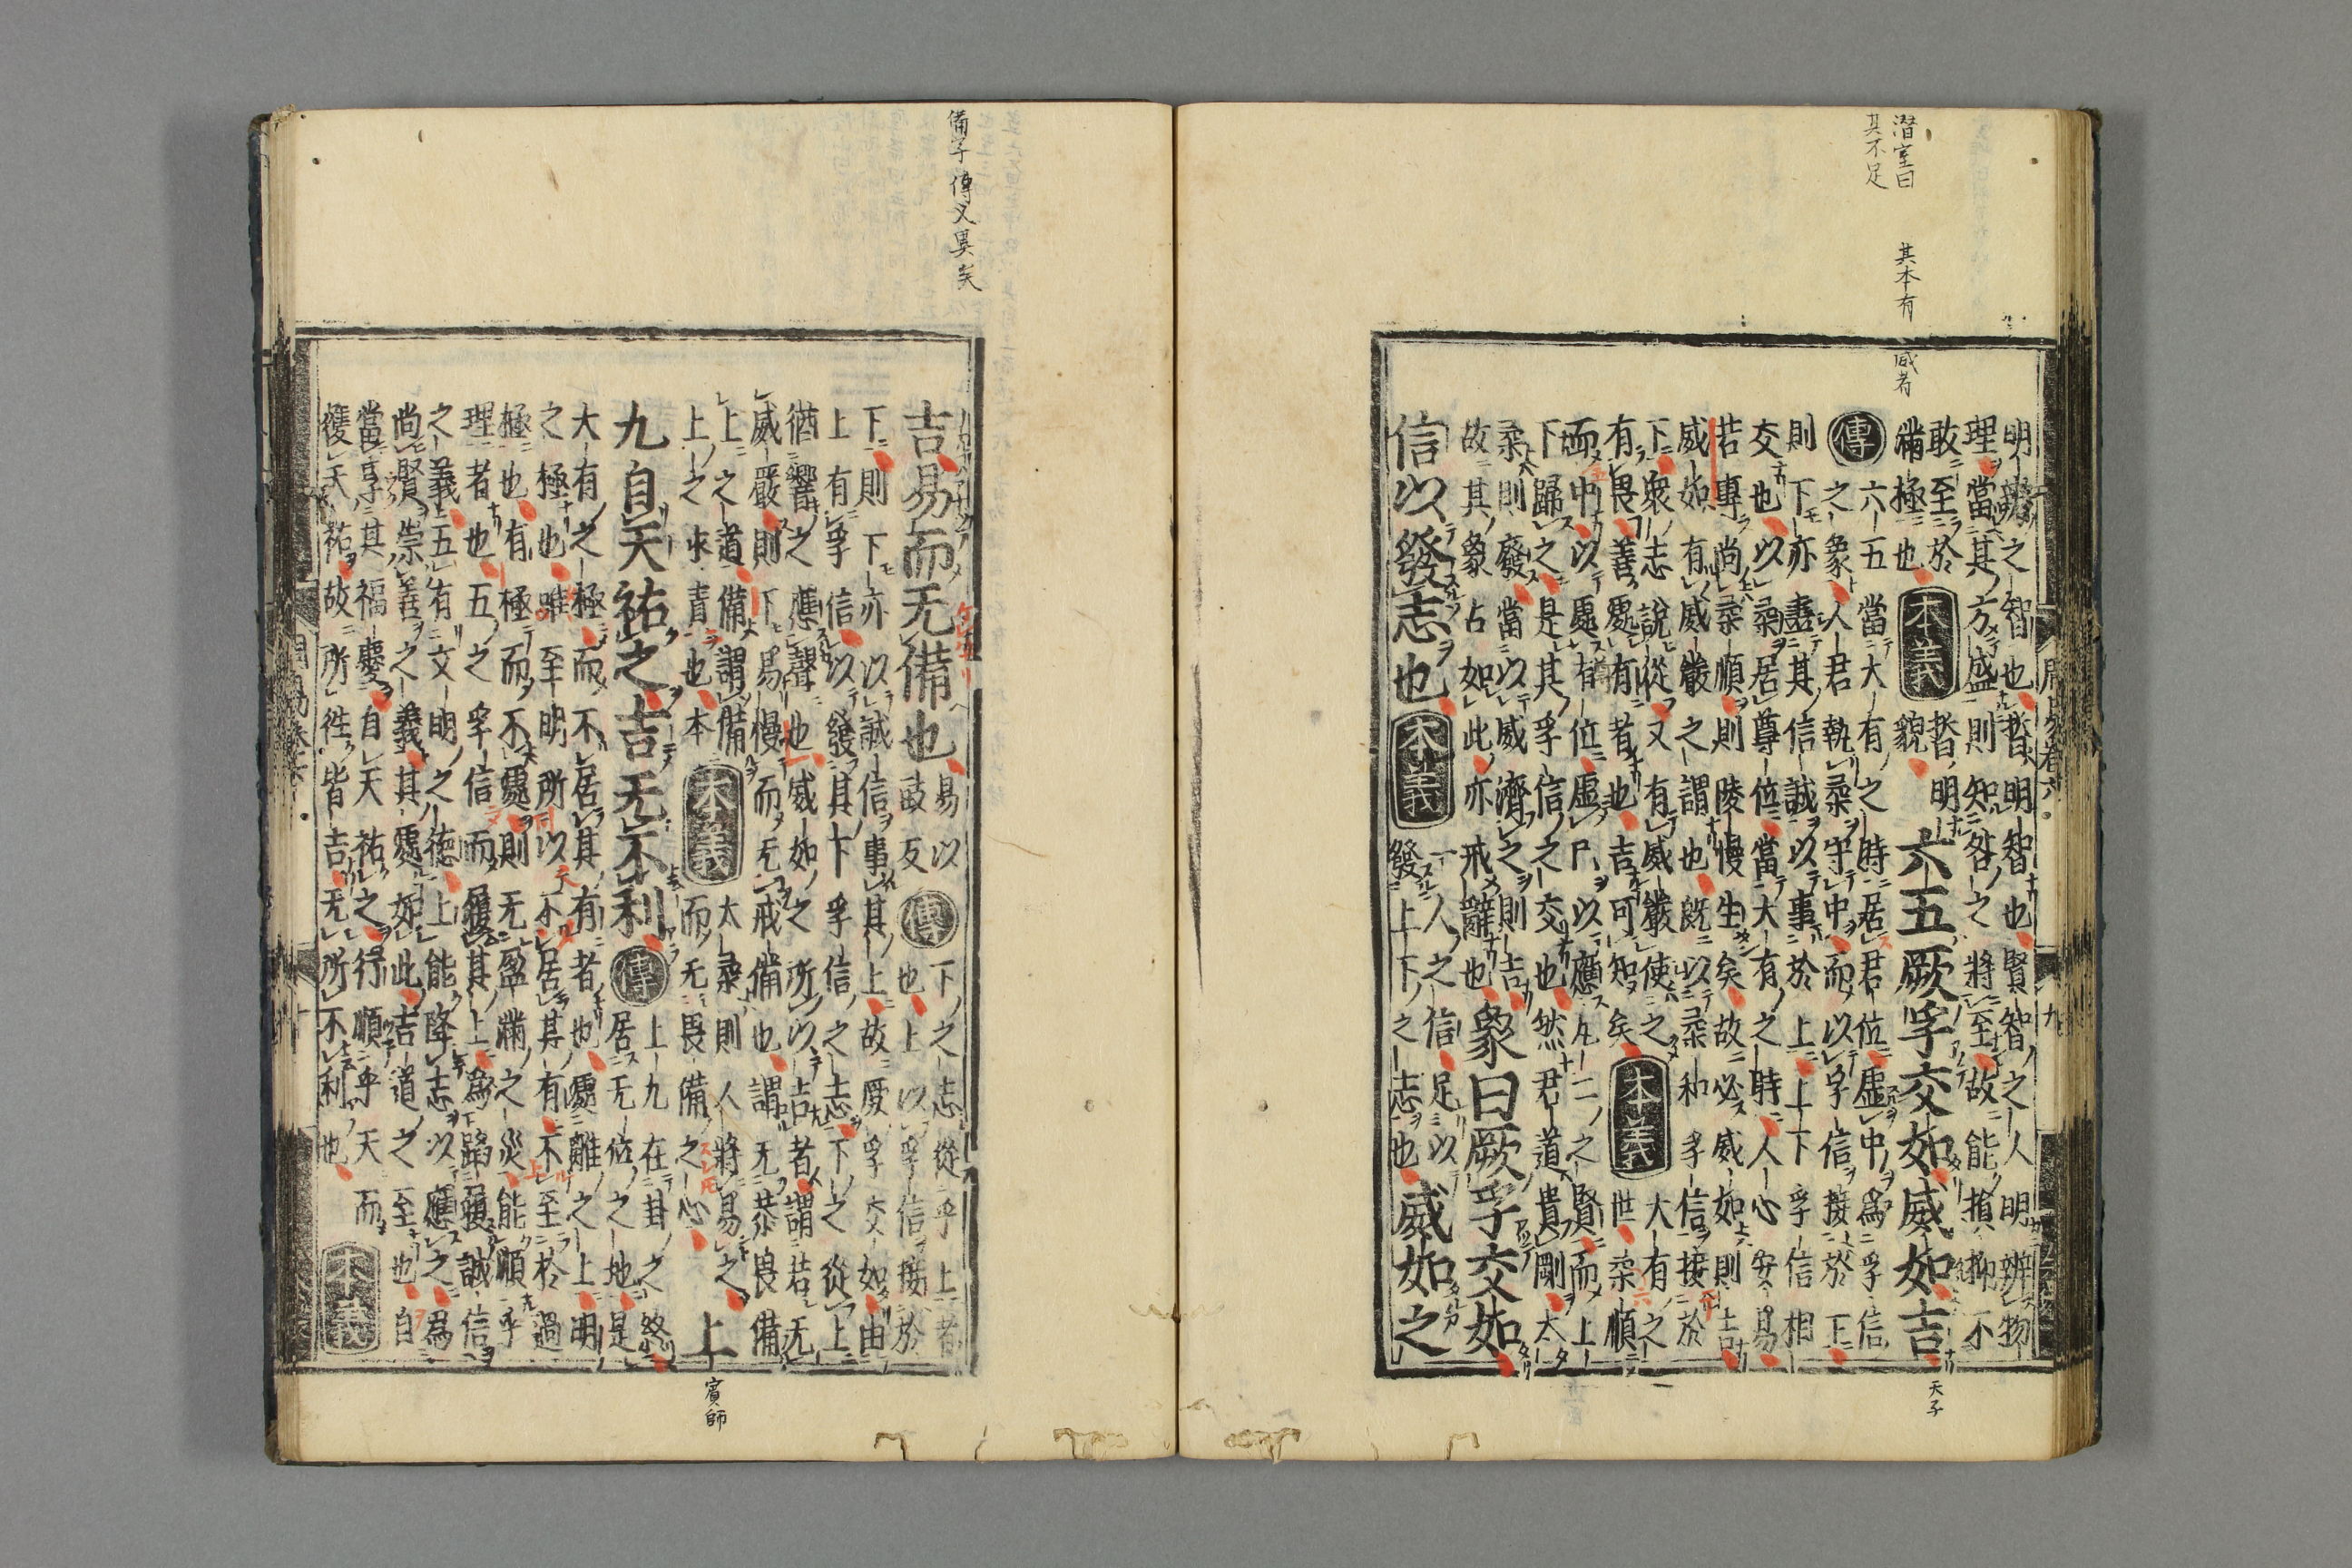 潜室曰
其不足
其本有
威者
明辨之智也晢明智也賢智之人明辨物
理當其方盛則知咎之將至故能損抑不
敢至於
滿極也
本義
晢明
貌
六五厥孚交如威如吉
天子
傳
六五當大有之時居君位虛中爲孚信
之象人君執柔守中而以孚信接於下
則下亦盡其信誠以事於上上下孚信相
交也以柔居尊位當大有之時人心安易
若專尚柔順則陵慢生矣故必威如則吉
威如有威嚴之謂也既以柔和孚信接於
下衆志說從又有威嚴使之
有畏善處有者也吉可知矣
本義
大有之
世柔順
而中以處尊位虛己以應九二之賢而上
下歸之是其孚信之交也然君道貴剛太
柔則廢當以威濟之則吉
故其象占如此亦戒辭也
象曰厥孚交如
信以發志也
本義
一人之信足以
發上下之志也
威如之
周易卷六
九
備字傳義異矣
吉易而无備也
易以
豉反
傳
下之志從乎上者
也上以孚信接於
下則下亦以誠信事其上故厥孚交如由
上有孚信以發其下孚信之志下之從上
猶響之應聲也威如之所以吉者謂若无
威嚴則下易慢而无戒備也謂无恭畏備
上之道備謂備
上之求責也本
本義
太柔則人將易之
而无畏備之心
上
賓師
九自天祐之吉无不利
傳
上九在卦之終
居无位之地是
大有之極而不居其有者也處離之上明
之極也唯至明所以不居其有不至於過
極也有極而不處則无盈滿之災能順乎
理者也五之孚信而履其上爲蹈履誠信
之義五有文明之德上能降志以應之爲
尚賢崇善之義其處如此吉道之至也自
當享其福慶自天祐之行順乎天而
獲天祐故所往皆吉无所不利也
本義